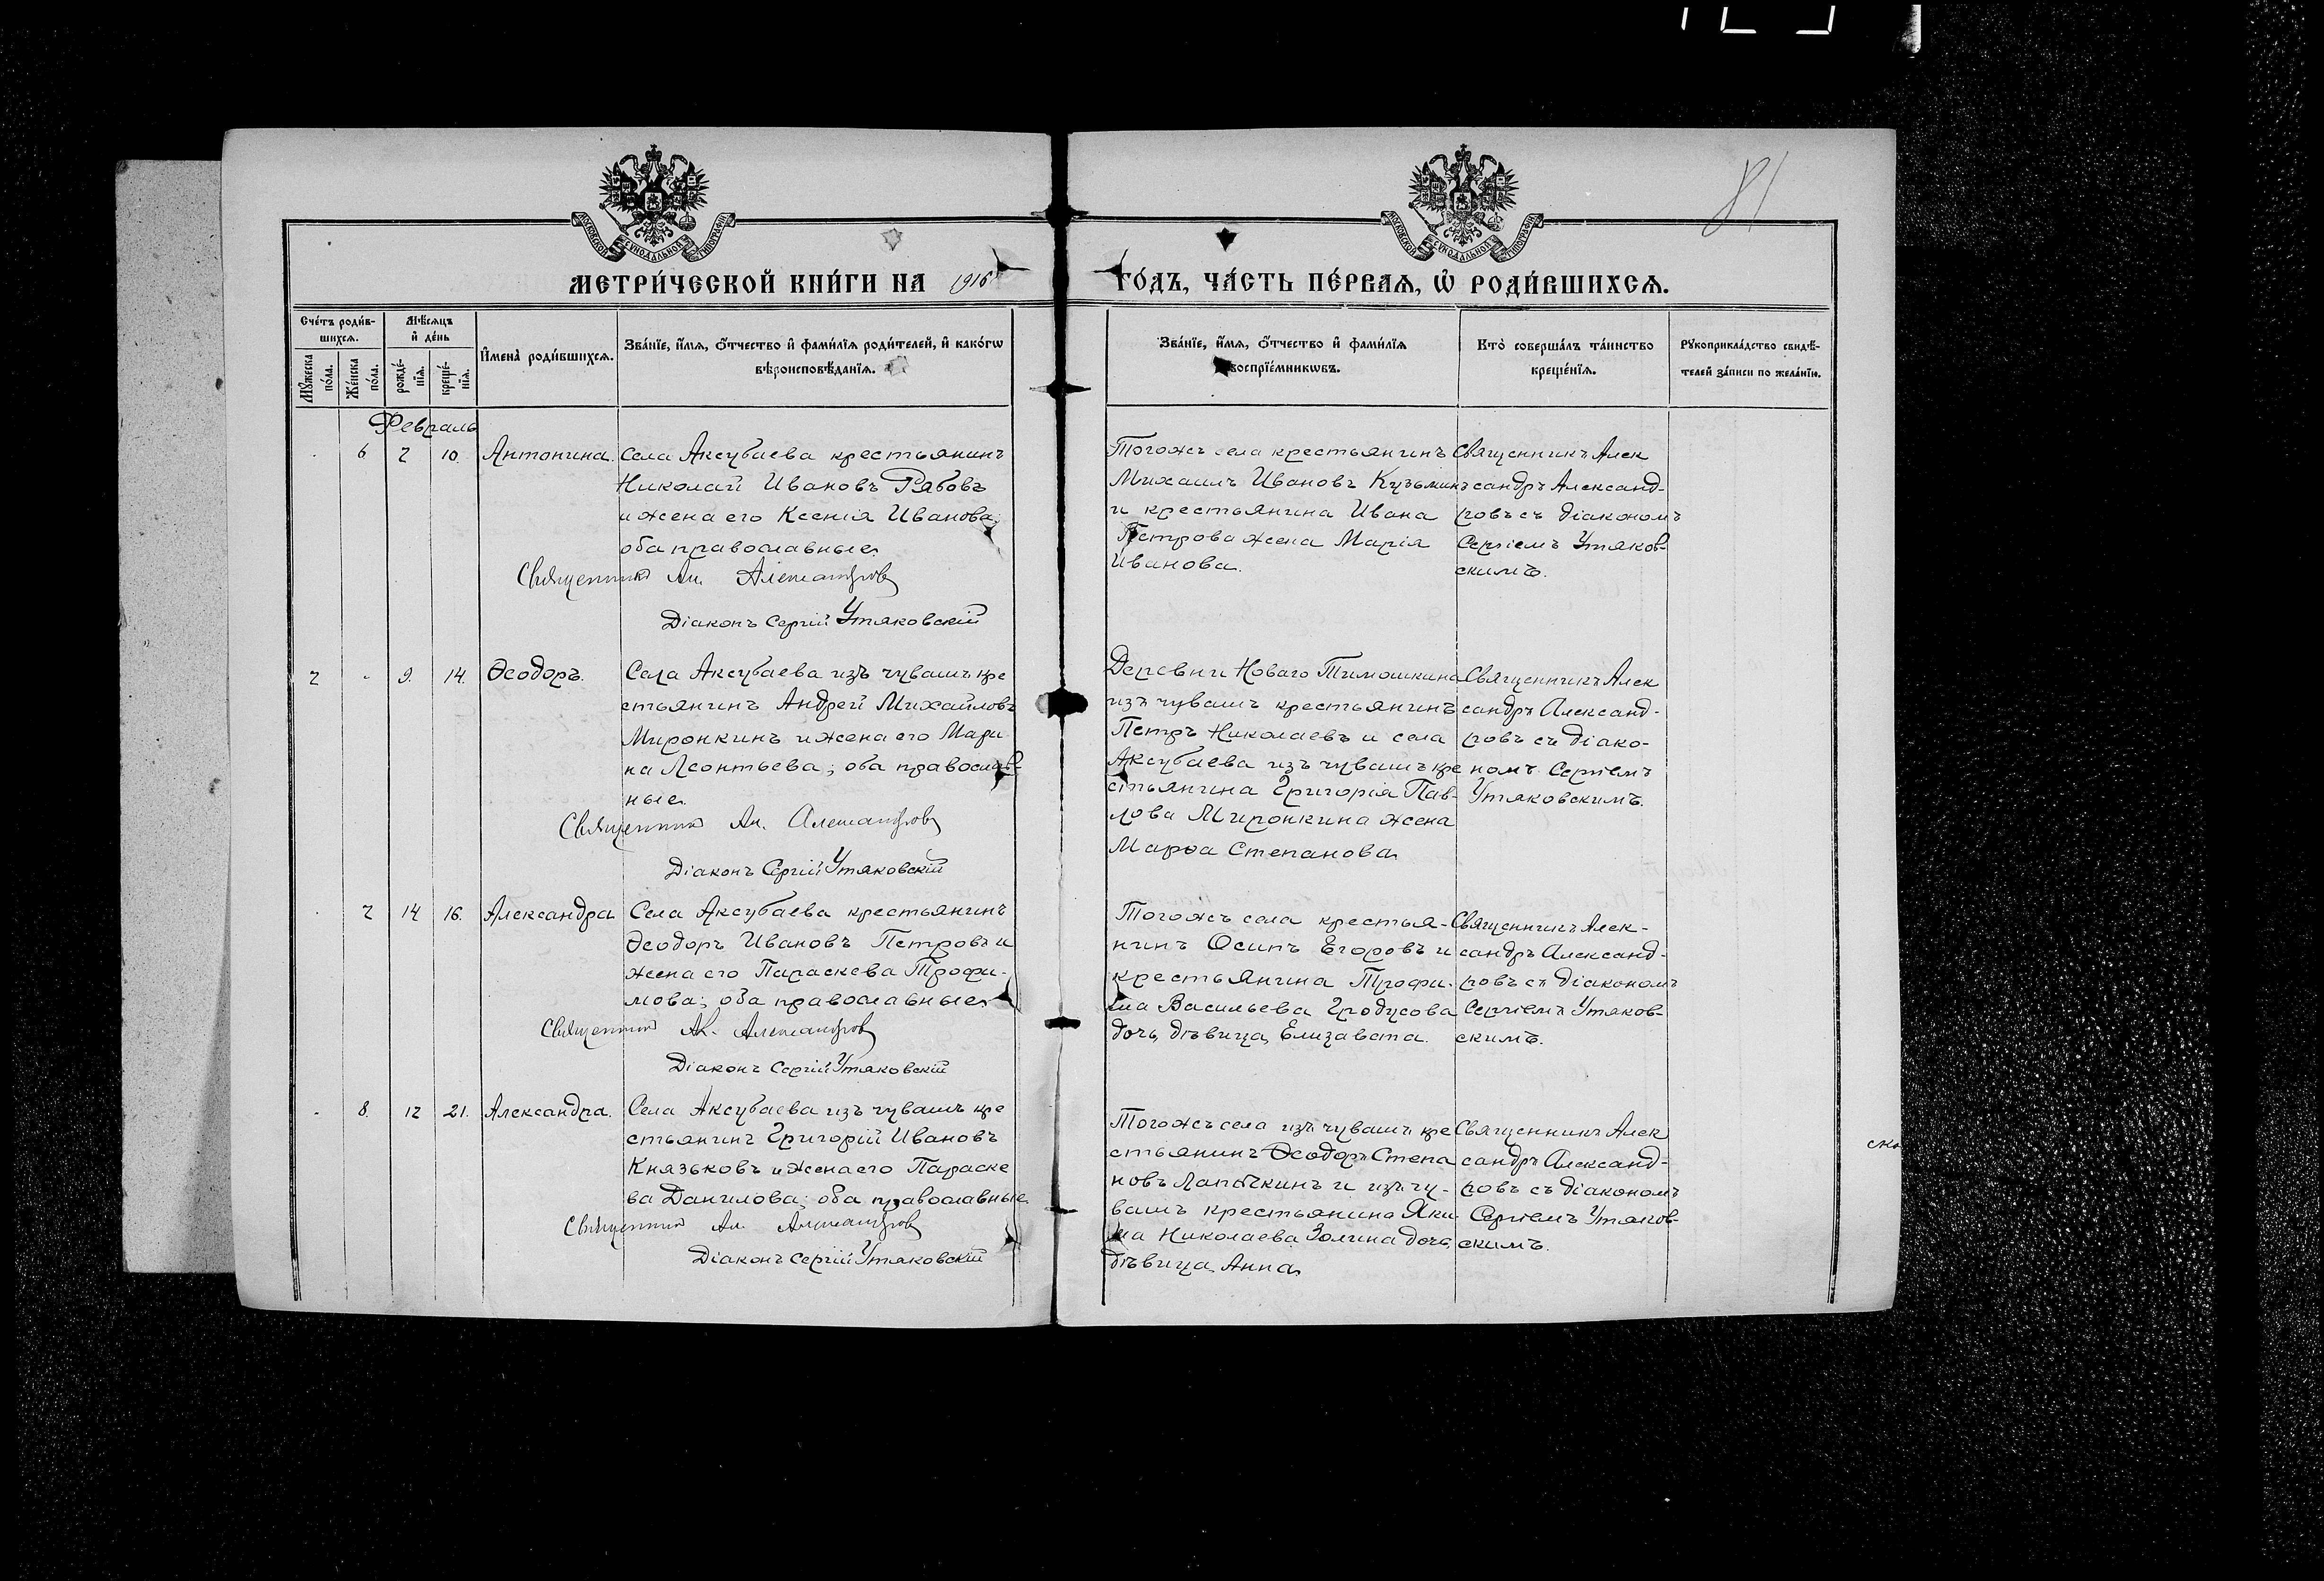 81
МОСКОВСКОЙ СѴНОДАЛЬНОЙ ТИПОГРАФІИ
МОСКОВСКОЙ СѴНОДАЛЬНОЙ ТИПОГРАФІИ
МЕТРИ́ЧЕСКОЙ КНИ́ГИ НА 1916
ГО́ДЪ, ЧА́СТЬ ПЕ́РВАѦ, Ѡ҆ РОДИ́ВШИХСѦ.
Сче́тъ роди́в-
шихсѧ.
Мѣ́сѧцъ
и҆ де́нь
Мꙋ́жеска
по́ла.
Же́нска
по́ла.
рожде́-
нїѧ.
креще́-
нїѧ.
И҆мена̀ роди́вшихсѧ.
Зва́нїе, и҆́мѧ, ѻ҆́тчество и҆ фами́лїѧ роди́телей, и҆ како́гѡ
вѣроисповѣ́данїѧ.
Зва́нїе, и҆́мѧ, ѻ҆́тчество и҆ фами́лїѧ
воспрїе́мникѡвъ.
Кто̀ соверша́лъ та́инство
креще́нїѧ.
Рꙋкоприкла́дство свидѣ́-
телей за́писи по жела́нїю.
Февраль
6 7 10. Антонина. Села Аксубаева крестьянинъ
Николай Ивановъ Рябовъ
и жена его Ксенія Иванова;
оба православные.
Священникъ Ал. Александровъ
Діаконъ Сергій Утяковскій
Тогожъ села крестьянинъ
Михаилъ Ивановъ Кузьминъ
и крестьянина Ивана
Петрова жена Марія
Иванова.
Священникъ Алек
сандръ Александ-
ровъ съ діакономъ
Сергіемъ Утяков-
скимъ.
2 9. 14. Ѳеодоръ. Села Аксубаева изъ чувашъ кре
стьянинъ Андрей Михайловъ
Миронкинъ и жена его Мари
на Леонтьева; оба православ-
ные.
Священникъ Ал. Александровъ
Діаконъ Сергій Утяковскій
Деревни Новаго Тимошкина
изъ чувашъ крестьянинъ
Петръ Николаевъ и села
Аксубаева изъ чувашъ кре
стьянина Григорія Пав-
лова Миронкина жена
Марѳа Степанова.
Священникъ Алек
сандръ Александ-
ровъ съ діако-
номъ Сергіемъ
Утяковскимъ.
7 14 16. Александра Села Аксубаева крестьянинъ
Ѳеодоръ Ивановъ Петровъ и
жена его Параскева Трофи-
мова; оба православные.
Священникъ Ал. Александровъ
Діаконъ Сергій Утяковскій
Тогожъ села крестья-
нинъ Осипъ Егоровъ и
крестьянина Трофи-
ма Васильева Гродусова
дочь, дѣвица, Елизавета.
Священникъ Алек-
сандръ Александ-
ровъ съ діакономъ
Сергіемъ Утяков-
скимъ.
8. 12 21. Александра. Села Аксубаева изъ чувашъ кре
стьянинъ Григорій Ивановъ
Князьковъ и жена его Параске
ва Данилова; оба православные.
Священникъ Ал. Александровъ
Діаконъ Сергій Утяковскій
Тогожъ села изъ чувашъ кре
стьянинъ Ѳеодоръ Степа
новъ Лапочкинъ и изъ чу-
вашъ крестьянина Яки
ма Николаева Золина дочь,
дѣвица, Анна.
Священникъ Алек
сандръ Александ-
ровъ съ діакономъ
Сергіемъ Утяков-
скимъ.